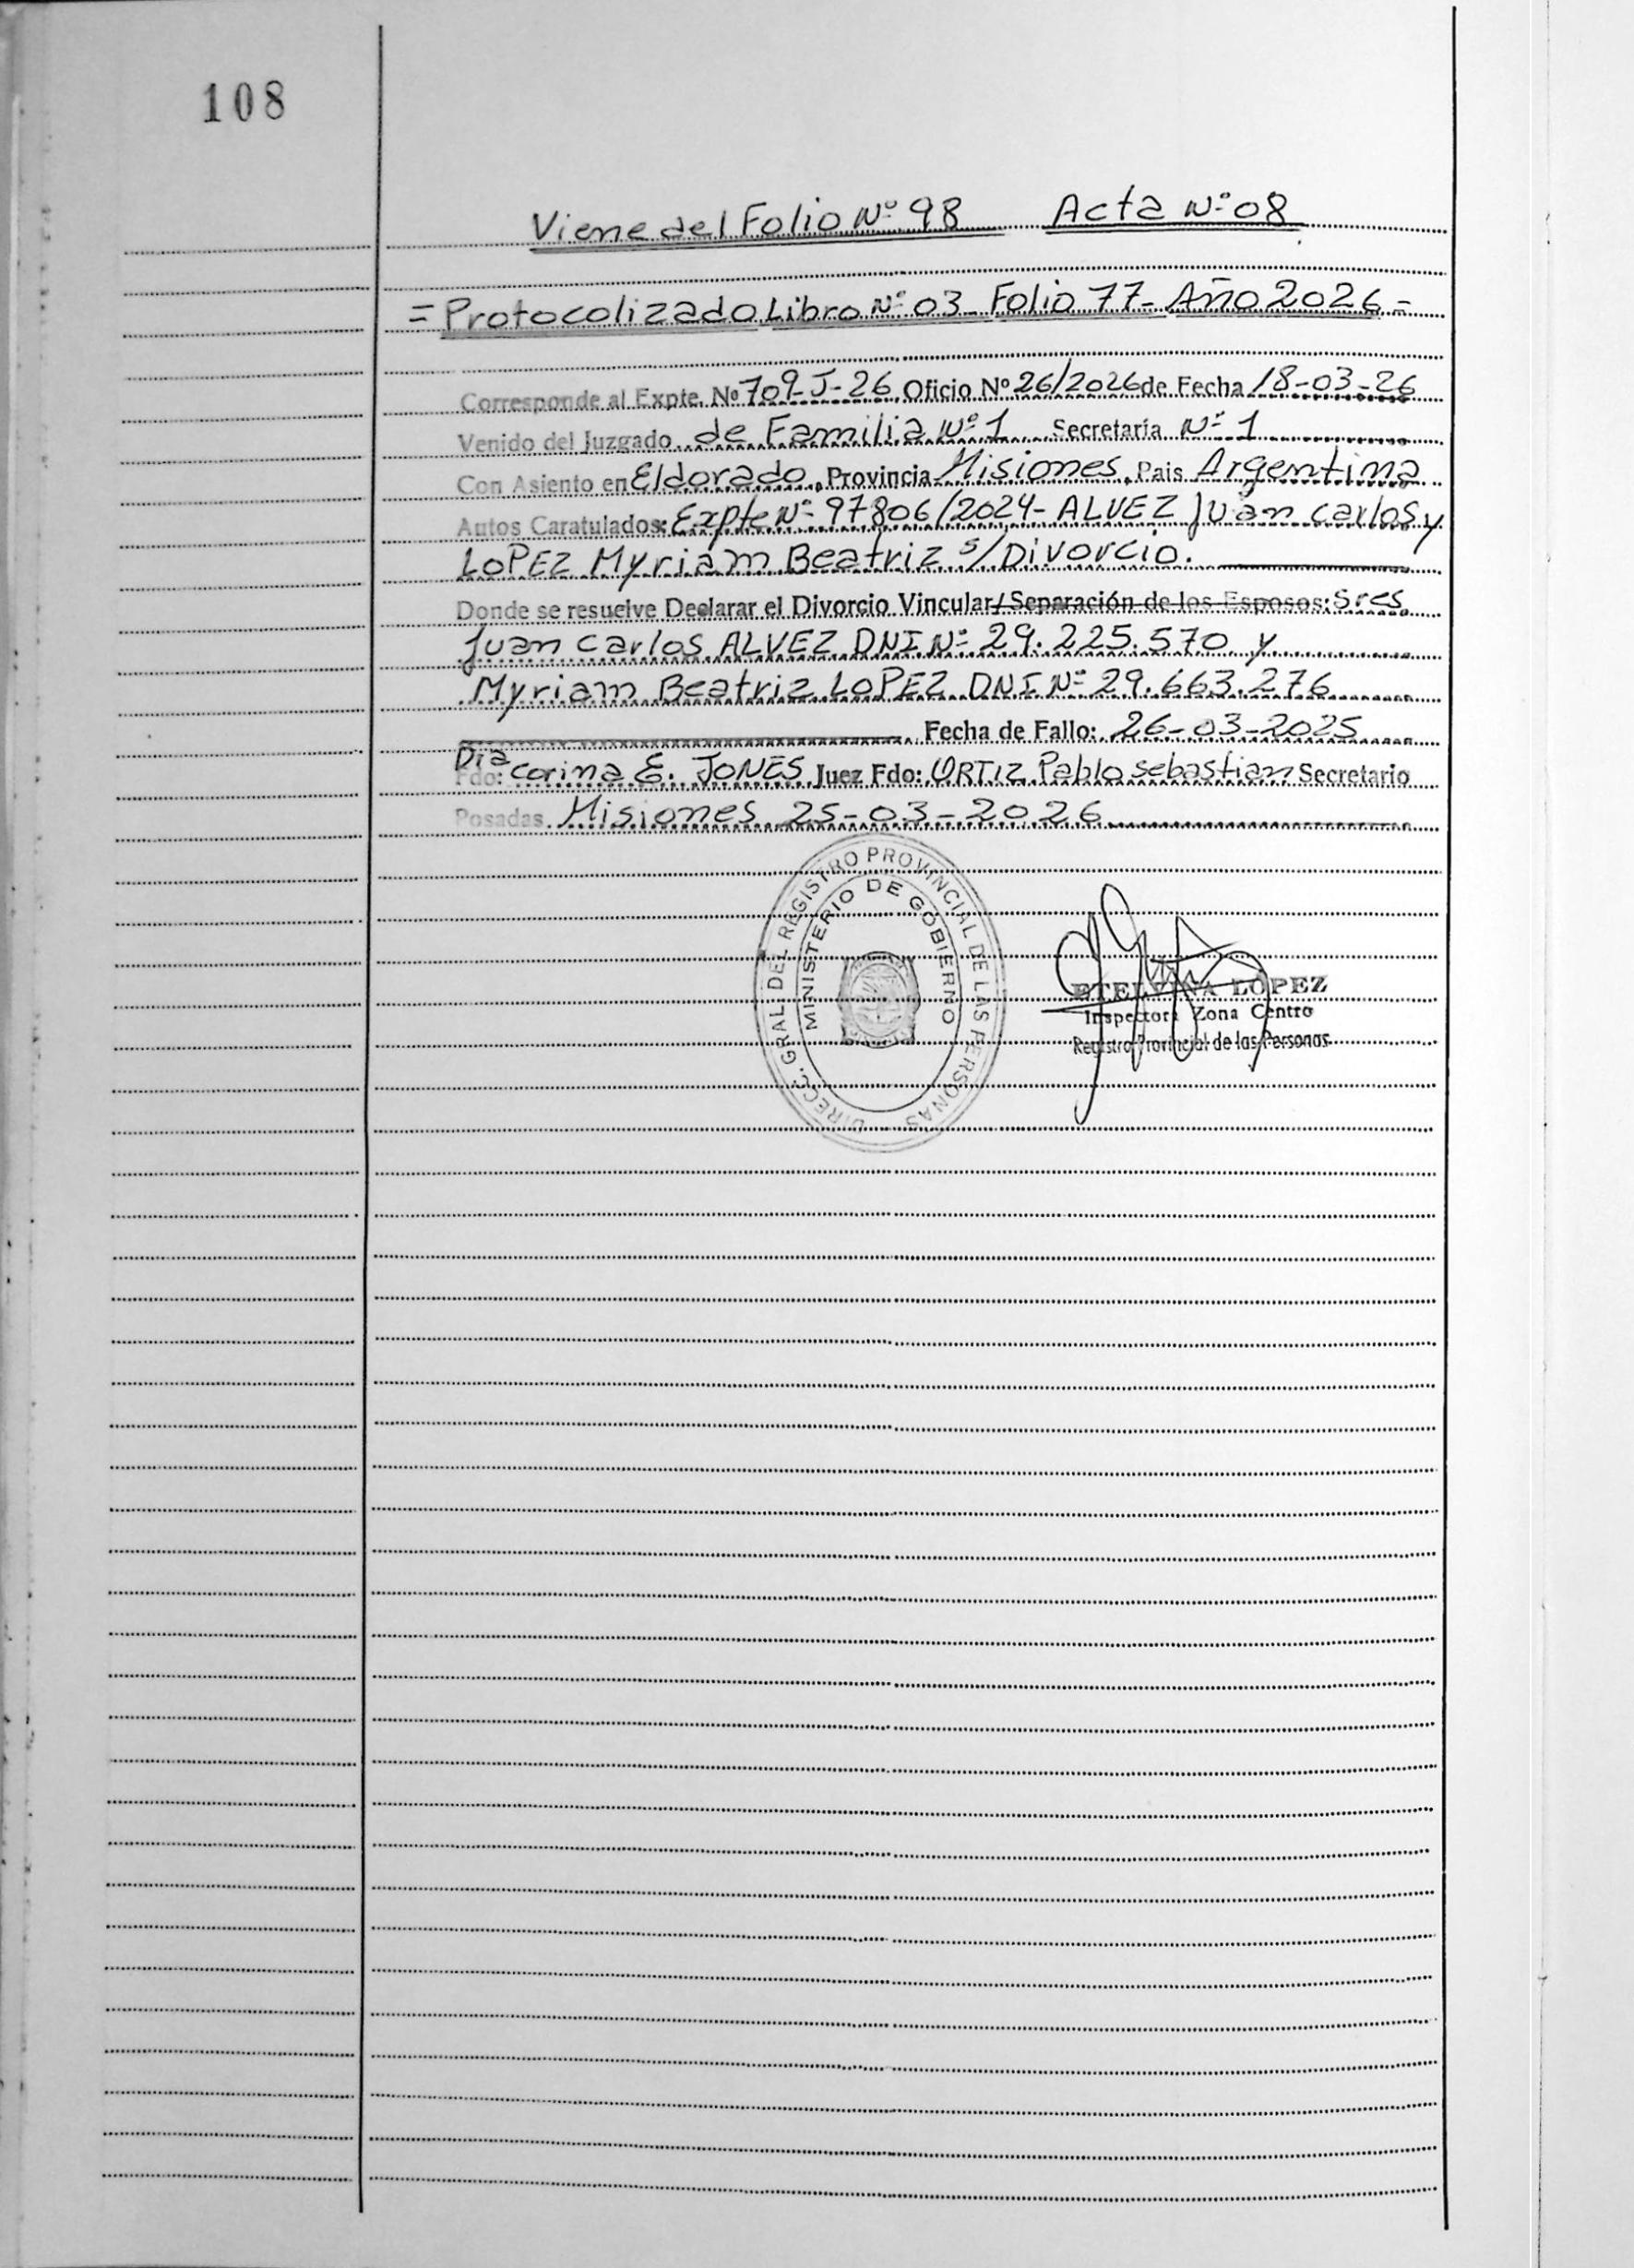 108
Viene del Folio Nº 98 Acta Nº 08
= Protocolizado Libro Nº 03 - Folio 77 - Año 2026 =
Corresponde al Expte. Nº 709-J-26 Oficio Nº 26/2026 de Fecha 18-03-26
Venido del Juzgado de Familia Nº 1 Secretaría Nº 1
Con Asiento en Eldorado, Provincia Misiones, Pais Argentina
Autos Caratulados: Expte Nº 97806/2024 - ALVEZ Juan Carlos y
LOPEZ Myriam Beatriz s/ Divorcio.
Donde se resuelve Declarar el Divorcio Vincular/ Separación de los Esposos: Sres.
Juan Carlos ALVEZ DNI Nº 29.225.570 y
Myriam Beatriz LOPEZ DNI Nº 29.663.276
Fecha de Fallo: 26-03-2025
Fdo: Dra Corina E. JONES Juez Fdo: ORTIZ Pablo Sebastian Secretario
Posadas Misiones 25-03-2026
DIRECC. GRAL. DEL REGISTRO PROVINCIAL DE LAS PERSONAS
MINISTERIO DE GOBIERNO
ETELVINA LOPEZ
Inspectora Zona Centro
Registro Provincial de las Personas